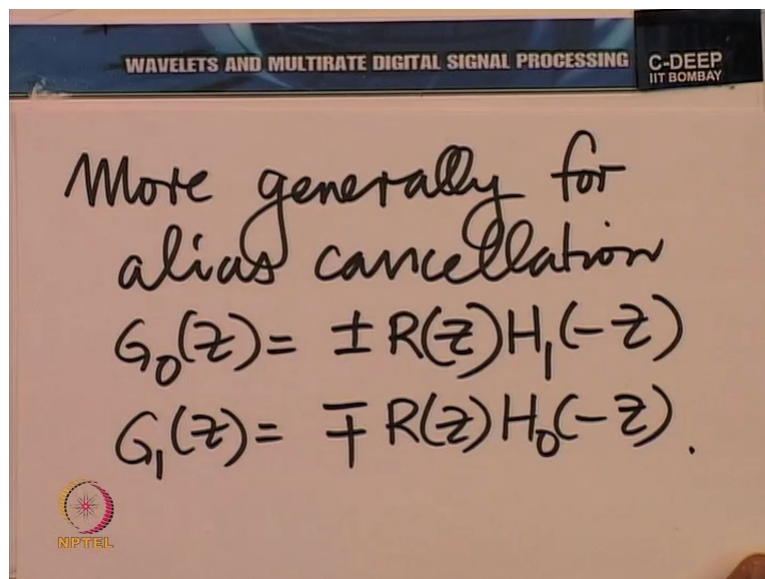 WAVELETS AND MULTIRATE DIGITAL SIGNAL PROCESSING
C-DEEP
IIT BOMBAY
More generally for
alias cancellation
G₀(Z) = ± R(Z) H₁(-Z)
G₁(Z) = ∓ R(Z) H₀(-Z).
NPTEL